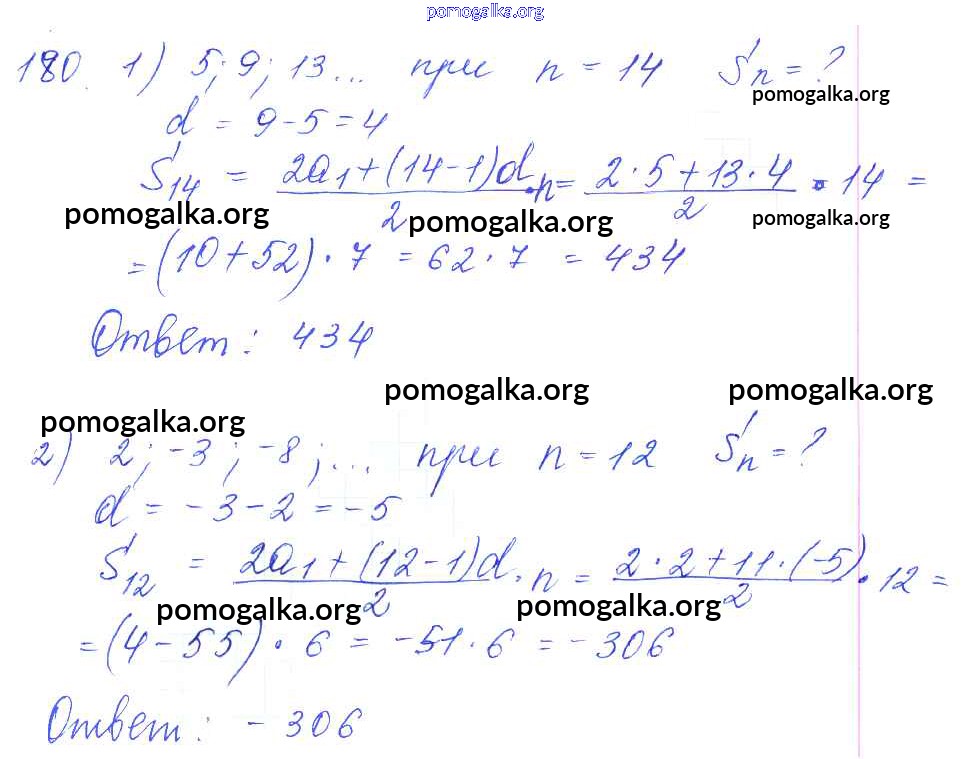 pomogalka.org
180 1) 5; 9; 13... при n = 14 Sn = ?
pomogalka.org
d = 9 - 5 = 4
S14 = (2a1 + (14 - 1)d)/2 · n = (2 · 5 + 13 · 4)/2 · 14 =
pomogalka.org pomogalka.org pomogalka.org
= (10 + 52) · 7 = 62 · 7 = 434
Ответ: 434
pomogalka.org pomogalka.org
pomogalka.org
2) 2; -3; -8; ... при n = 12 Sn = ?
d = -3 - 2 = -5
S12 = (2a1 + (12 - 1)d)/2 · n = (2 · 2 + 11 · (-5))/2 · 12 =
pomogalka.org pomogalka.org
= (4 - 55) · 6 = -51 · 6 = -306
Ответ: - 306